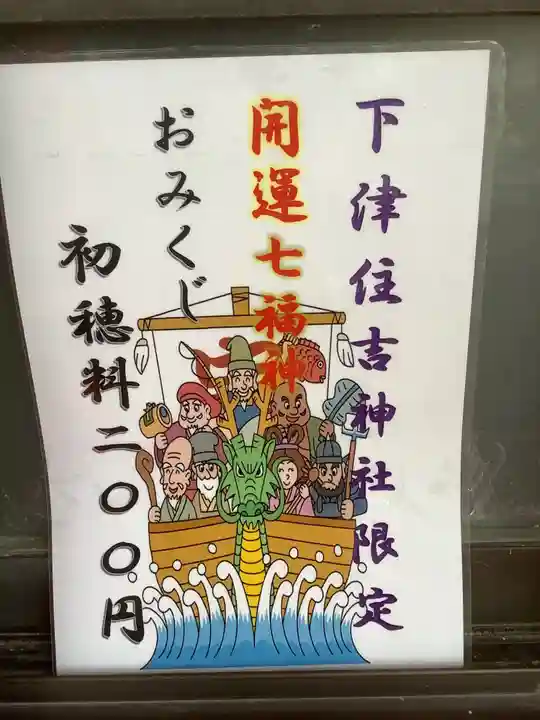 下津住吉神社限定
開運七福神
おみくじ
初穂料二〇〇円